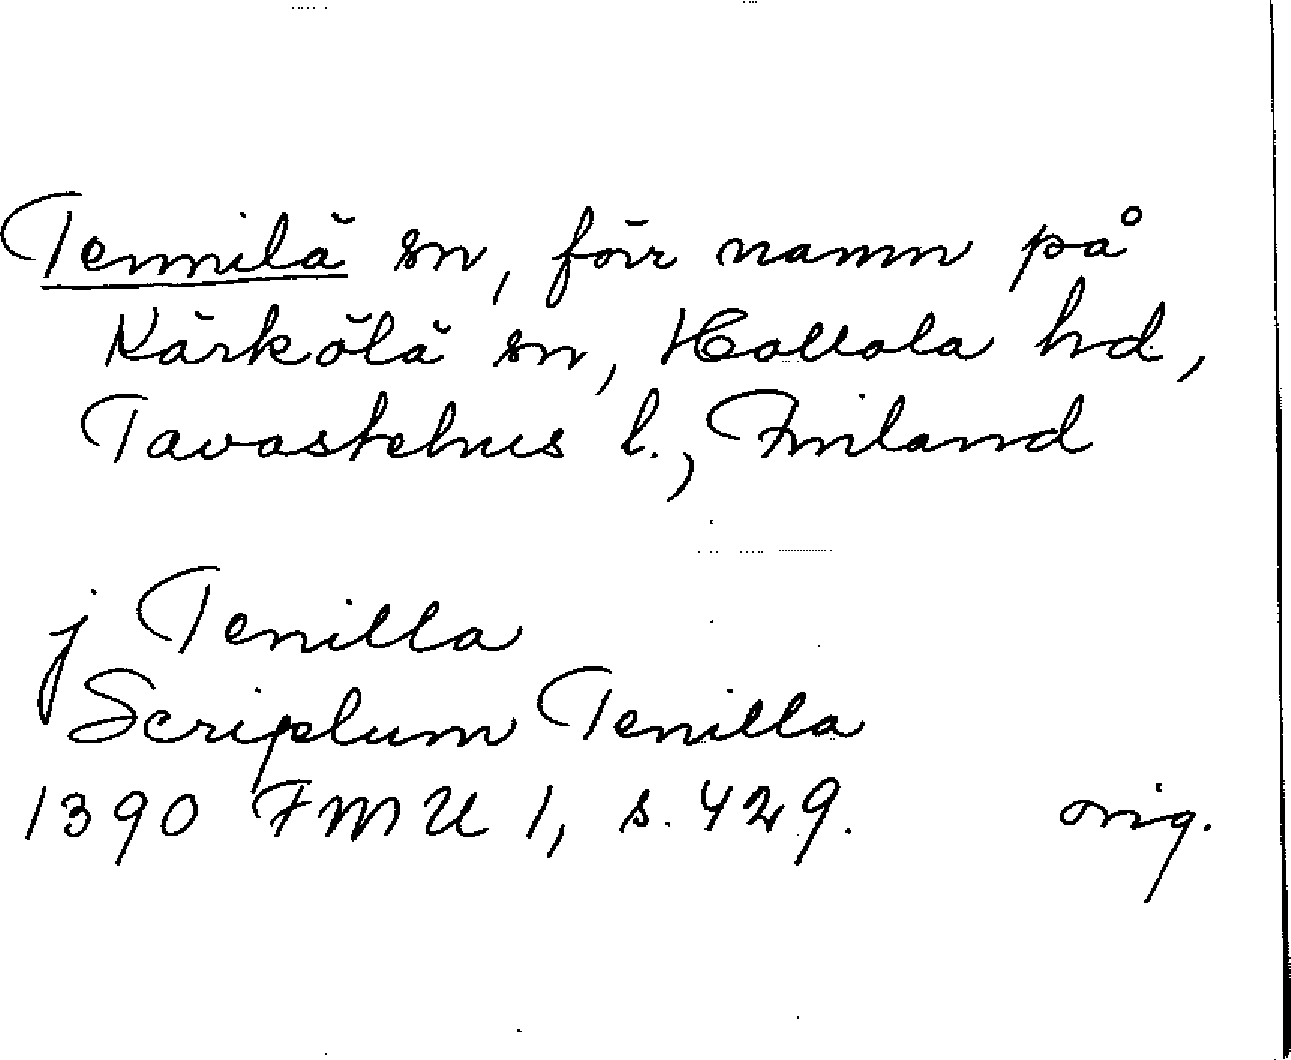 Tennilä sn, förr namn på
Kärkölä sn, Hollola hd,
Tavastehus l., Finland
j Tenilla
Scriptum Tenilla
1390 FMU 1, s. 429. orig.